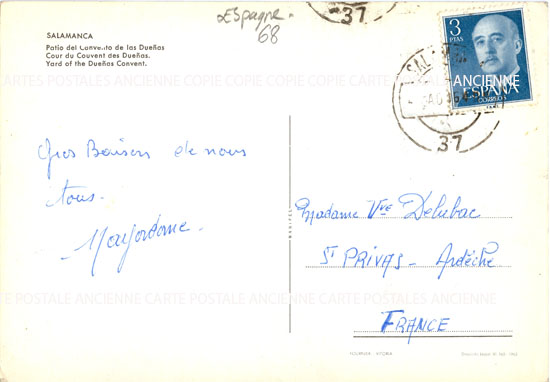 Espagne.
68
SALAMANCA
Patio del Convento de las Dueñas
Cour du Couvent des Dueñas.
Yard of the Dueñas Convent.
37
3
PTAS
ESPAÑA
CORREOS
37
CARTES POSTALES ANCIENNE COPIE COPIE COPIE COPIE COPIE ANCIENNE
Gros Baisers de nous
tous.
Madame Vve Delubac
St PRIVAS - Ardèche
FRANCE
POSTALE ANCIENNE CARTE POSTALE ANCIENNE CARTE POSTALES ANCIENNE
FOURNIER - VITORIA